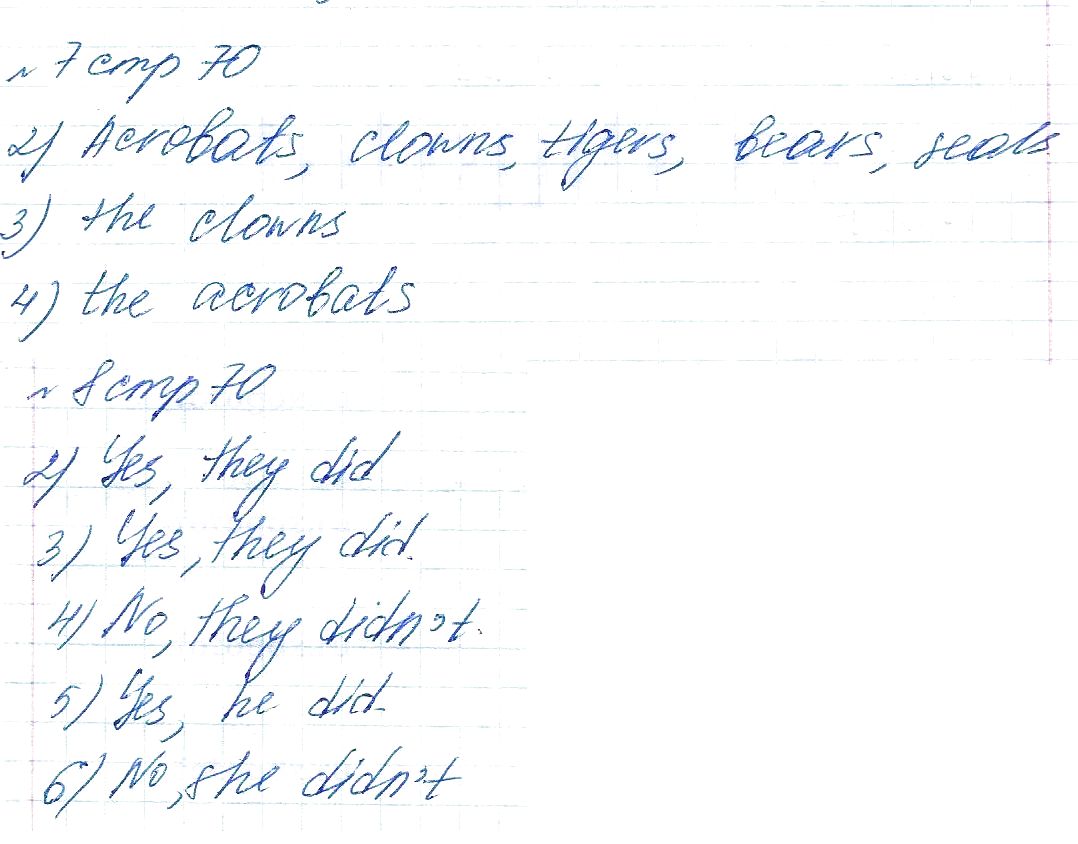 ~ 7 стр 70
2) Acrobats, clowns, tigers, bears, seals
3) the clowns
4) the acrobats
~ 8 стр 70
2) Yes, they did
3) Yes, they did.
4) No, they didn't.
5) Yes, he did
6) No, she didn't